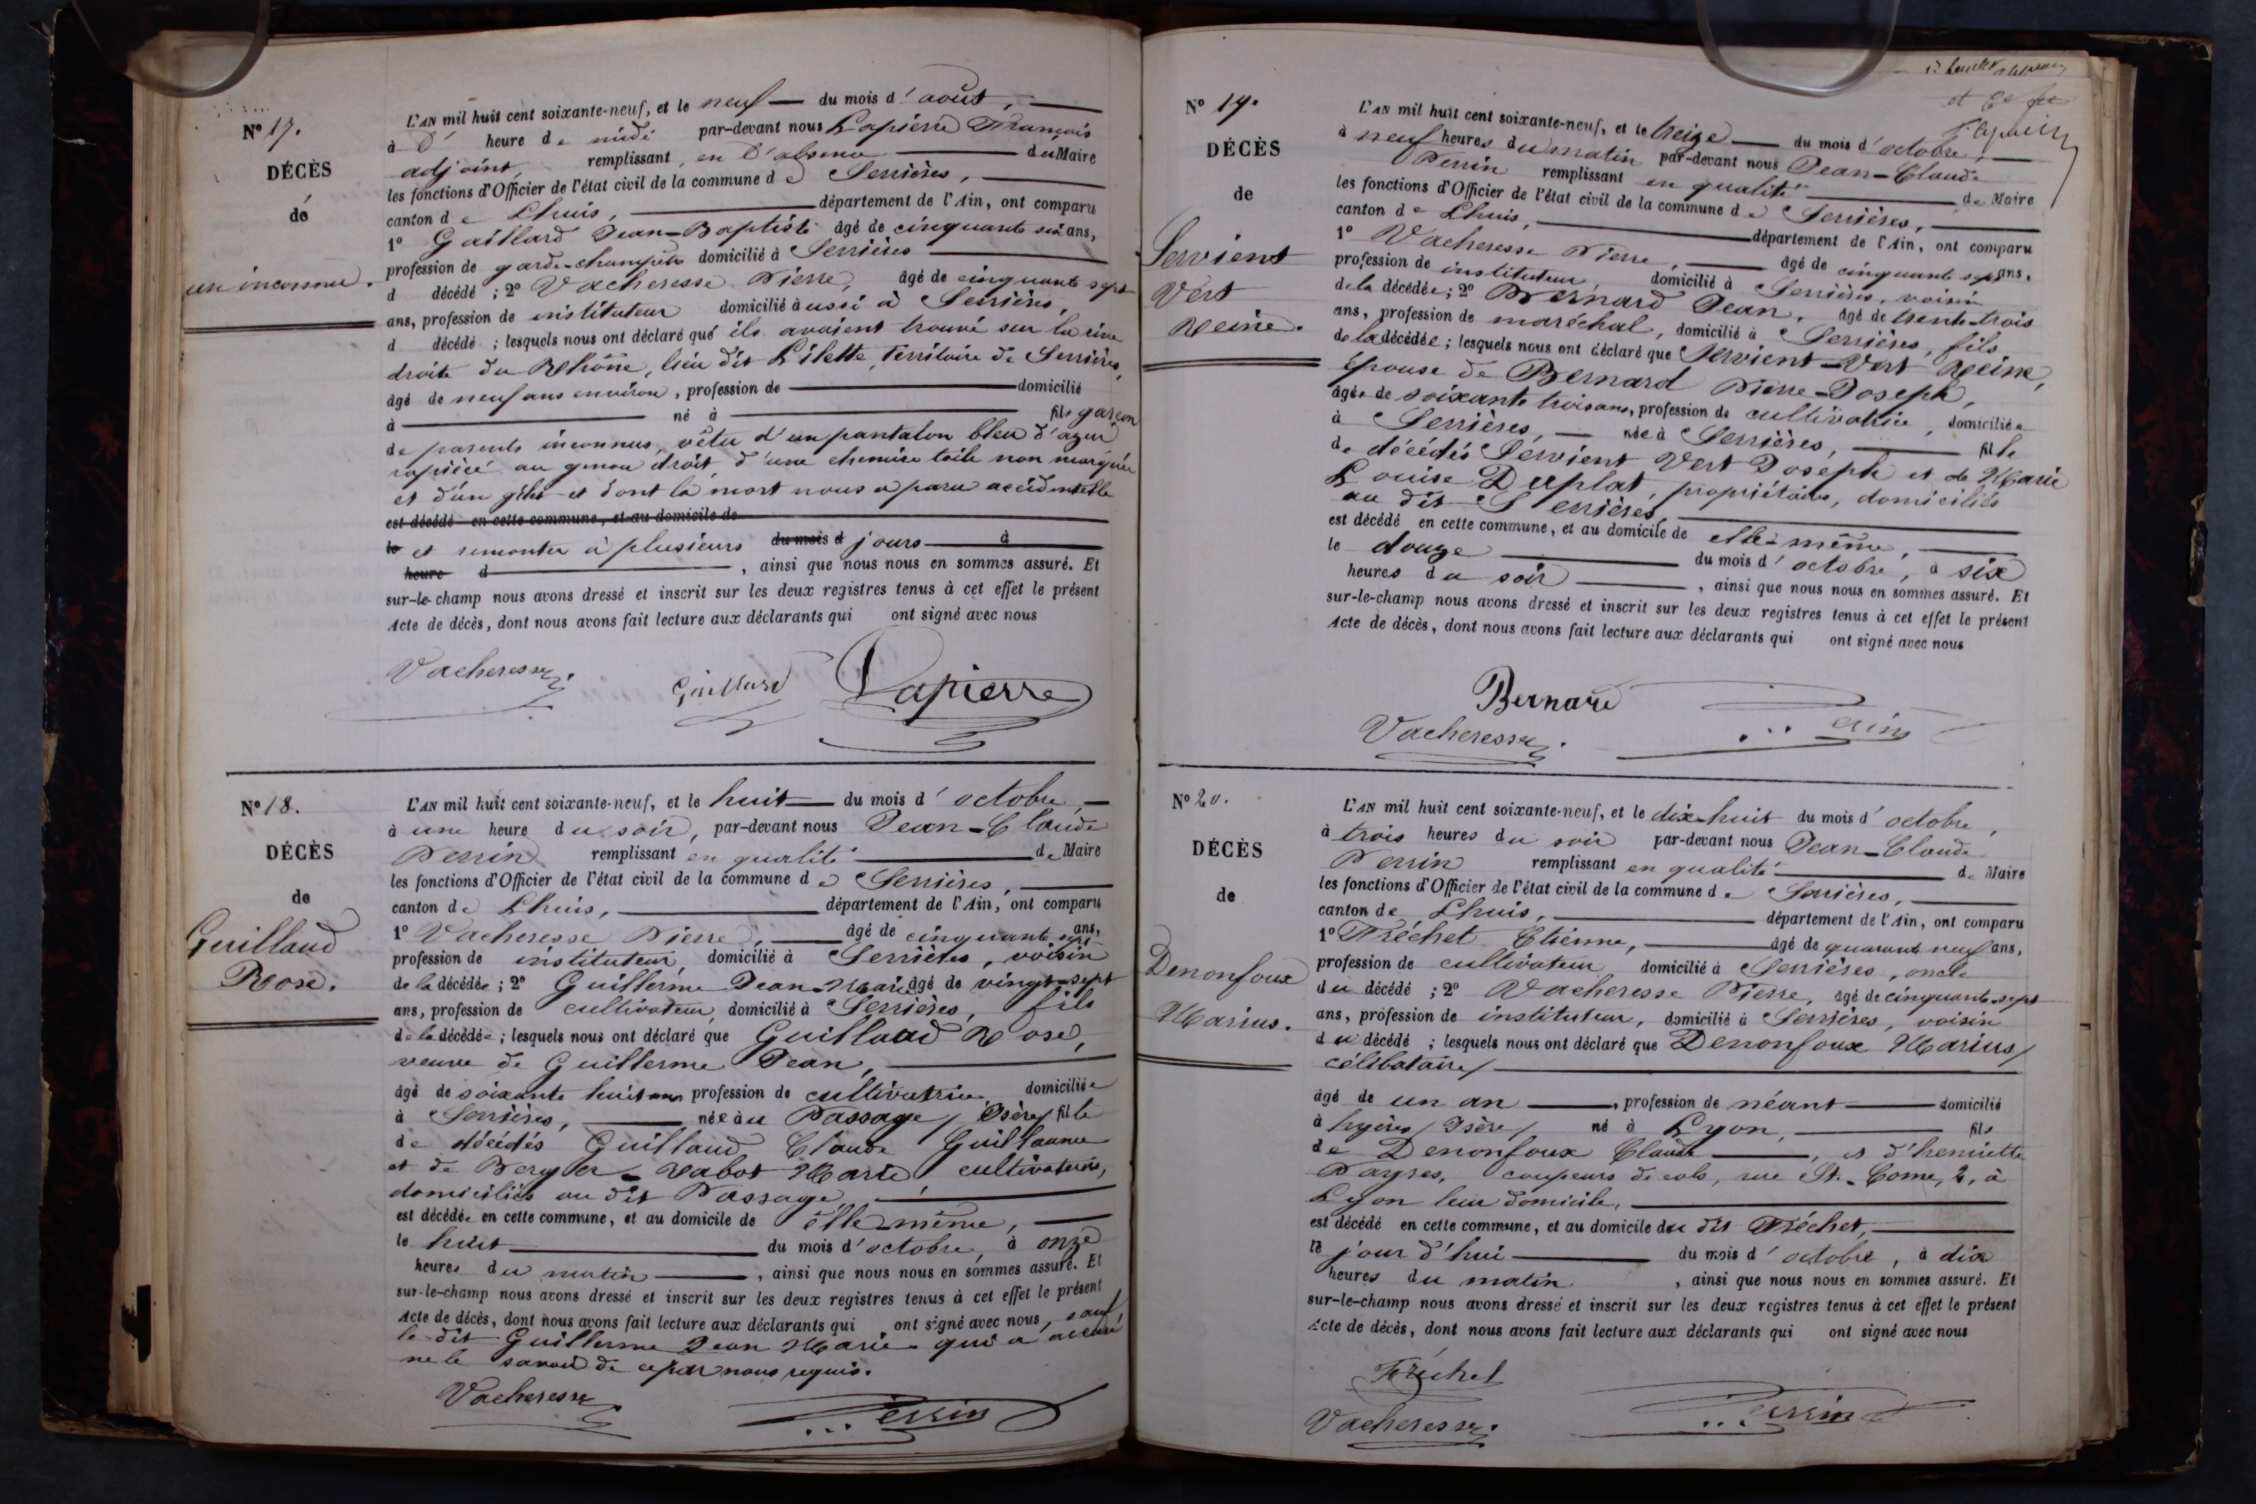 N° 17.
DÉCÈS
de
un inconnu.
L'AN mil huit cent soixante-neuf, et le neuf du mois d'août,
à l' heure de midi par-devant nous Lapierre François
adjoint, remplissant en l'absence du Maire
les fonctions d'Officier de l'état civil de la commune de Serrières,
canton de Lhuis, département de l'Ain, ont comparu
1° Gaillard Jean-Baptiste âgé de cinquante six ans,
profession de garde-champêtre domicilié à Serrières
d décédé ; 2° Vacheresse Pierre, âgé de cinquante sept
ans, profession de instituteur domicilié aussi à Serrières,
d décédé ; lesquels nous ont déclaré que ils avaient trouvé sur la rive
droite du Rhône, lieu dit Lilette, territoire de Serrières,
âgé de neuf ans environ, profession de domicilié
à né à fils garçon
de parents inconnus, vêtu d'un pantalon bleu d'azur
rapiécé au genou droit, d'une chemise toile non marquée
et d'un gilet et dont la mort nous a paru accidentelle
est décédé en cette commune, et au domicile de
le et remonter à plusieurs du mois d jours à
heure d , ainsi que nous nous en sommes assuré. Et
sur-le-champ nous avons dressé et inscrit sur les deux registres tenus à cet effet le présent
Acte de décès, dont nous avons fait lecture aux déclarants qui ont signé avec nous
Vacheresse Gaillard Lapierre
N° 18.
DÉCÈS
de
Guillaud
Rose.
L'AN mil huit cent soixante-neuf, et le huit du mois d'octobre,
à une heure du soir, par-devant nous Jean-Claude
Perrin remplissant en qualité de Maire
les fonctions d'Officier de l'état civil de la commune de Serrières,
canton de Lhuis, département de l'Ain, ont comparu
1° Vacheresse Pierre, âgé de cinquante sept ans,
profession de instituteur, domicilié à Serrières, voisin
de la décédée ; 2° Guillerme Jean-Marie âgé de vingt-sept
ans, profession de cultivateur, domicilié à Serrières, fils
de la décédée ; lesquels nous ont déclaré que Guillaud Rose,
veuve de Guillerme Jean,
âgé de soixante huit ans profession de cultivatrice, domiciliée
à Serrières, née au Passage / Isère / fille
de décédés Guillaud Claude Guillaume
et de Marie, cultivateurs,
domiciliés au dit Passage,
est décédée en cette commune, et au domicile de elle-même,
le huit du mois d'octobre, à onze
heures du matin, ainsi que nous nous en sommes assuré. Et
sur-le-champ nous avons dressé et inscrit sur les deux registres tenus à cet effet le présent
Acte de décès, dont nous avons fait lecture aux déclarants qui ont signé avec nous, sauf
le dit Guillerme Jean Marie qui a avoué
ne le savoir de ce par nous requis.
Vacheresse Perrin
N° 19.
DÉCÈS
de
Servient
Vert
Reine.
L'AN mil huit cent soixante-neuf, et le treize du mois d'octobre,
à neuf heures du matin par-devant nous Jean-Claude
Perrin remplissant en qualité de Maire
les fonctions d'Officier de l'état civil de la commune de Serrières,
canton de Lhuis, département de l'Ain, ont comparu
1° Vacheresse Pierre, âgé de cinquante sept ans,
profession de instituteur, domicilié à Serrières, voisin
de la décédée ; 2° Bernard Jean, âgé de trente-trois
ans, profession de maréchal, domicilié à Serrières, fils
de la décédée ; lesquels nous ont déclaré que Servient-Vert Reine,
épouse de Bernard Pierre-Joseph,
âgée de soixante trois ans, profession de cultivatrice, domiciliée
à Serrières, née à Serrières, fille
de décédés Servient Vert Joseph et de Marie
Louise Duplat, propriétaires, domiciliés
au dit Serrières,
est décédé en cette commune, et au domicile de elle-même,
le douze du mois d'octobre, à six
heures du soir, ainsi que nous nous en sommes assuré. Et
sur-le-champ nous avons dressé et inscrit sur les deux registres tenus à cet effet le présent
Acte de décès, dont nous avons fait lecture aux déclarants qui ont signé avec nous
Bernard
Vacheresse Perrin
N° 20.
DÉCÈS
de
Denonfoux
Marius.
L'AN mil huit cent soixante-neuf, et le dix-huit du mois d'octobre,
à trois heures du soir par-devant nous Jean-Claude
Perrin remplissant en qualité de Maire
les fonctions d'Officier de l'état civil de la commune de Serrières,
canton de Lhuis, département de l'Ain, ont comparu
1° Fréchet Etienne, âgé de quarante neuf ans,
profession de cultivateur domicilié à Serrières, oncle
du décédé ; 2° Vacheresse Pierre, âgé de cinquante-sept
ans, profession de instituteur, domicilié à Serrières, voisin
du décédé ; lesquels nous ont déclaré que Denonfoux Marius,
célibataire,
âgé de un an, profession de néant domicilié
à / Isère / né à Lyon, fils
de Denonfoux Claude, et d'henriette
Payres, coupeurs de cols, rue St. Come, 2, à
Lyon leur domicile,
est décédé en cette commune, et au domicile du dit Fréchet,
le jour d'hui du mois d'octobre, à dix
heures du matin, ainsi que nous nous en sommes assuré. Et
sur-le-champ nous avons dressé et inscrit sur les deux registres tenus à cet effet le présent
Acte de décès, dont nous avons fait lecture aux déclarants qui ont signé avec nous
Fréchet
Vacheresse Perrin